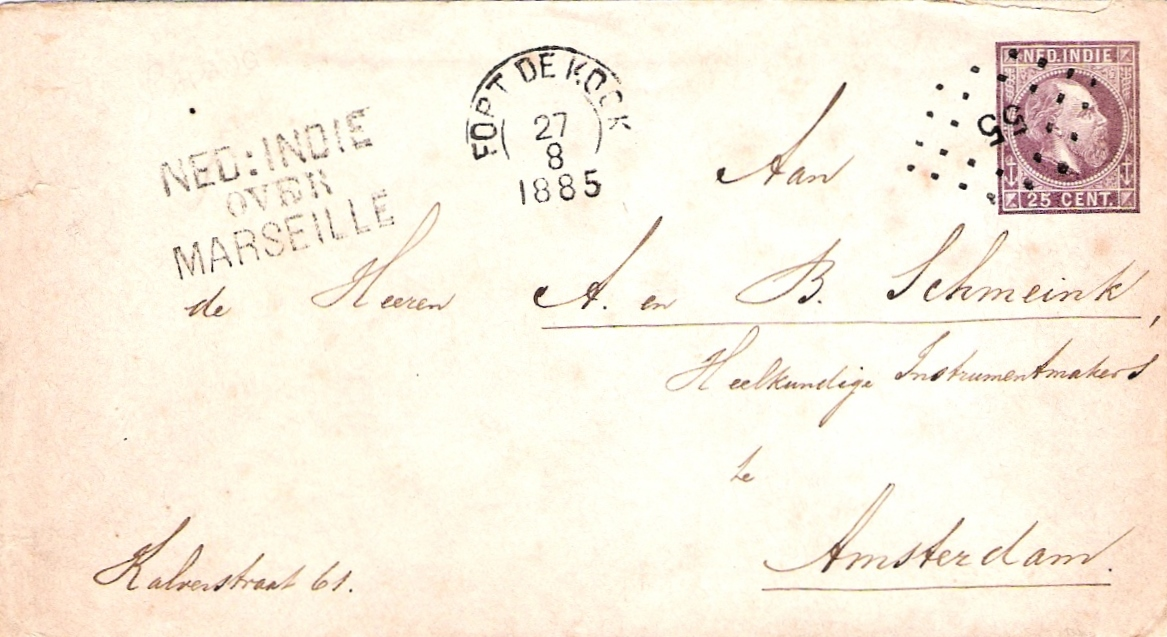 NED. INDIE
FORT DE KOCK
27
8
1885
55
25 CENT.
NED: INDIE
OVER
MARSEILLE
Aan
de Heeren A. en B. Schmeink,
Heelkundige Instrumentmakers
te
Amsterdam.
Kalverstraat 61.